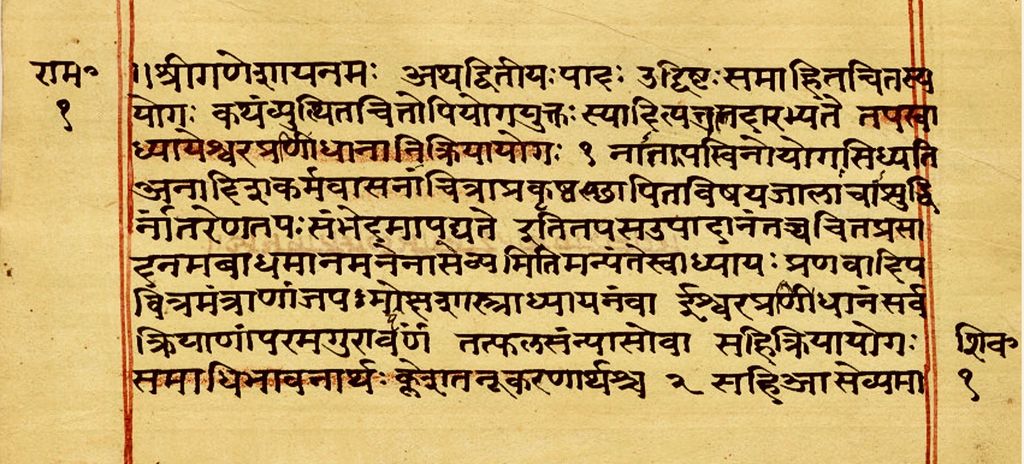 राम॰ ॥श्रीगणेशायनमः अथद्वितीयःपादः उद्दिष्टःसमाहितचितस्य
१ योगः कथंव्युत्थितचित्तोपियोगयुक्तः स्यादित्येतत्तदारभ्यते तपस्वा
ध्यायेश्वरप्रणीधानानिक्रियायोगः १ नातापस्विनोयोगसिध्यति
अनादिशकर्मवासनाचित्राप्र विषयजालाचाशुद्धि
र्नांतरेणतपःसंभेद्मापद्यते इतितपसउपादानंतच्चचितप्रसा
दनमबाधमानमनेनासेव्यमितिमन्यंतेस्वाध्यायः प्रणवादिप
वित्रमंत्राणांजपःमोक्षशास्त्राध्यायनंवा ईश्वरप्रणीधानंसर्व
क्रियाणांपरमगुरावर्पणं तत्फलसंन्यासोवा सहिक्रियायोगः शिव॰
समाधिभावनार्थः क्लेशतनूकरणार्थश्च २ सहिआसेव्यमा १